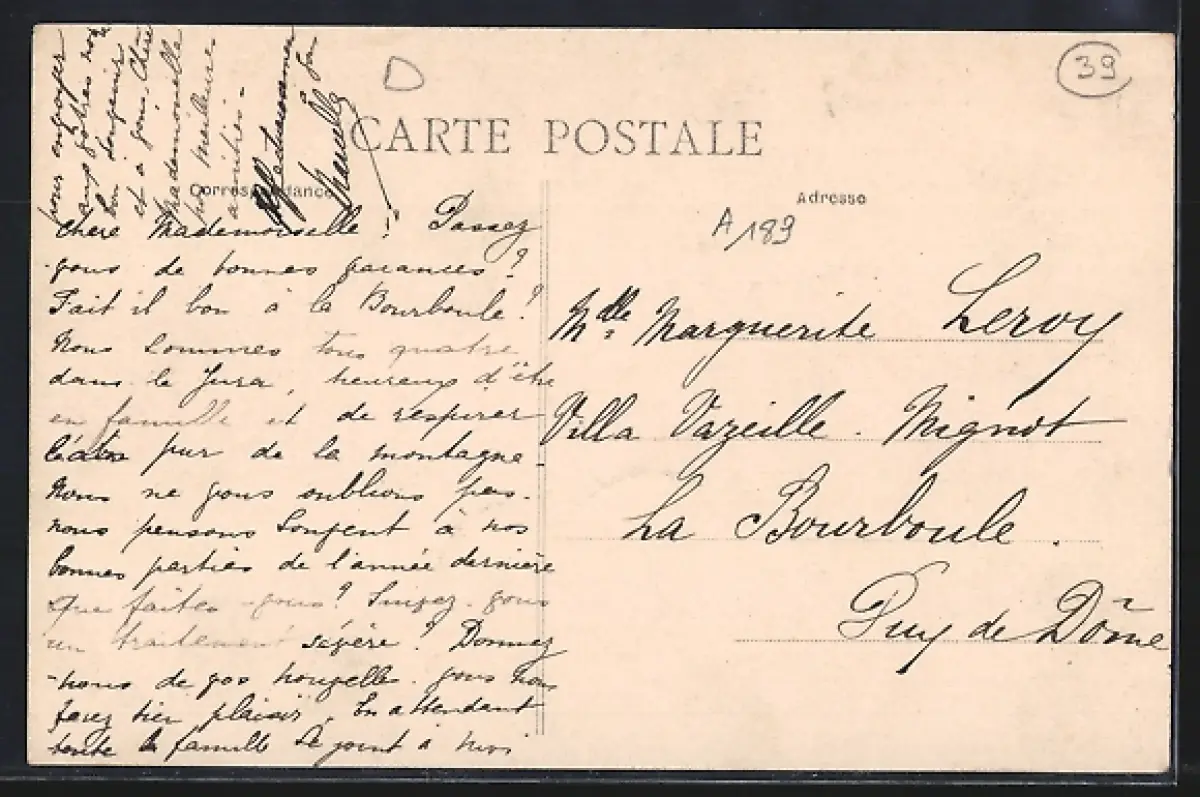 39
CARTE POSTALE
Correspondance
Adresse
A/189
Chère Mademoiselle ! Passez
-vous de bonnes vacances ?
Fait il bon à la Bourboule ?
Nous sommes tous quatre
dans le Jura, heureux d'être
en famille et de respirer
l'air pur de la montagne.
Nous ne vous oublions pas.
nous pensons souvent à nos
bonnes parties de l'année dernière
Que faites-vous ? Suivez-vous
un traitement sévère ? Donnez
-nous de vos nouvelles. vous nous
ferez bien plaisir. En attendant
toute la famille se joint à moi
pour envoyer
aux vôtres nos
bon souvenir
et à vous, Chère
Mademoiselle
nos meilleures
amitiés -
Affectueusement
Mlle Marguerite Leroy
Villa Vazeille-Mignot
La Bourboule.
Puy de Dôme